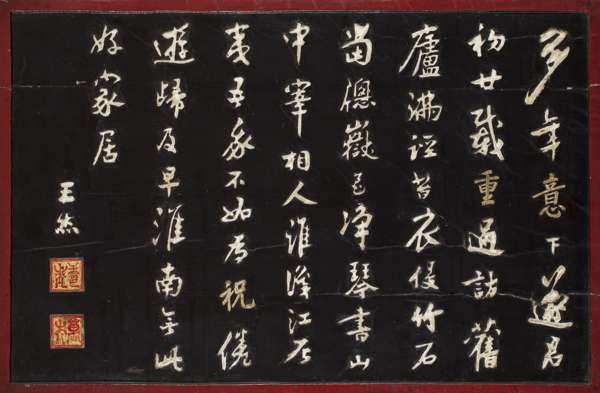 多年意下遂君
初廿載重過訪舊
廬滿逕苔衣侵竹石
當牕嶽色净琴書山
中宰相人誰識江左
夷吾我不如為祝倦
遊歸及早淮南無此
好家居
王杰